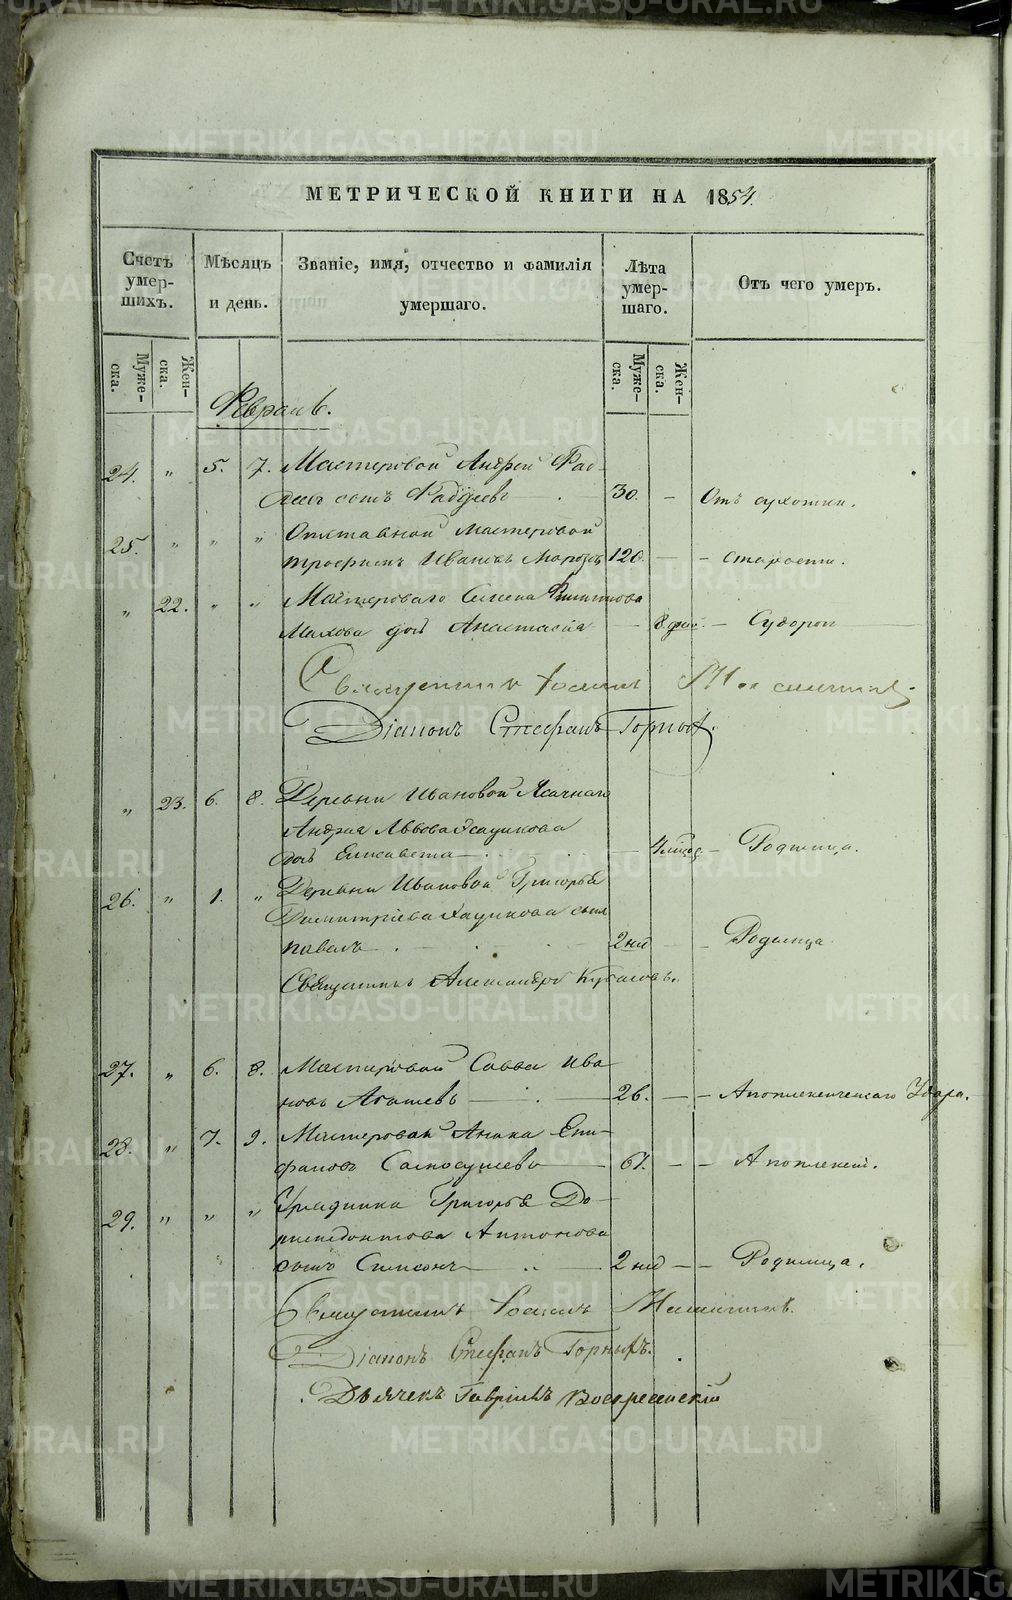 МЕТРИЧЕСКОЙ КНИГИ НА 1854.
Счетъ умер-шихъ.
Муже-ска.
Жен-ска.
Мѣсяцъ и день.
Званіе, имя, отчество и фамилія умершаго.
Лѣта умер-шаго.
Муже-ска.
Жен-ска.
Отъ чего умеръ.
Февраль.
24. " 5. 7. Мастеровой Андрей Фад-
сынъ Фадѣевъ 30. - Отъ сухотки.
25. " " " Отставной мастеровой
Трофимъ Ивановъ Морозовъ 120. - - старости.
" 22. " " Мастероваго Семена Филиппова
Махова дочь Анастасія - 8 дней - Судорог
Священникъ Іоаннъ
Діаконъ Стефанъ Горныхъ.
" 23. 6. 8. Деревни Ивановой Ясачнаго
Андрея Львова
дочь Елисавета - - Родимца.
26. " 1. " Деревни Ивановой Григорья
Димитріева сынъ
Павелъ 2 нед - - Родимца
Священникъ Александръ
27. " 6. 8. Мастеровой Савва Ива
новъ 26. - - Апоплексическаго Удара.
28. " 7. 9. Мастеровой Аника Епи-
фановъ 61. - - Апоплексіи.
29. " " " Урядника Григорья До-
римедонтова Антонова
сынъ Симеонъ 2 нед - - Родимца.
Священникъ Іоаннъ
Діаконъ Стефанъ Горныхъ.
Дьячекъ Гавріилъ Воскресенскій
METRIKI.GASO-URAL.RU